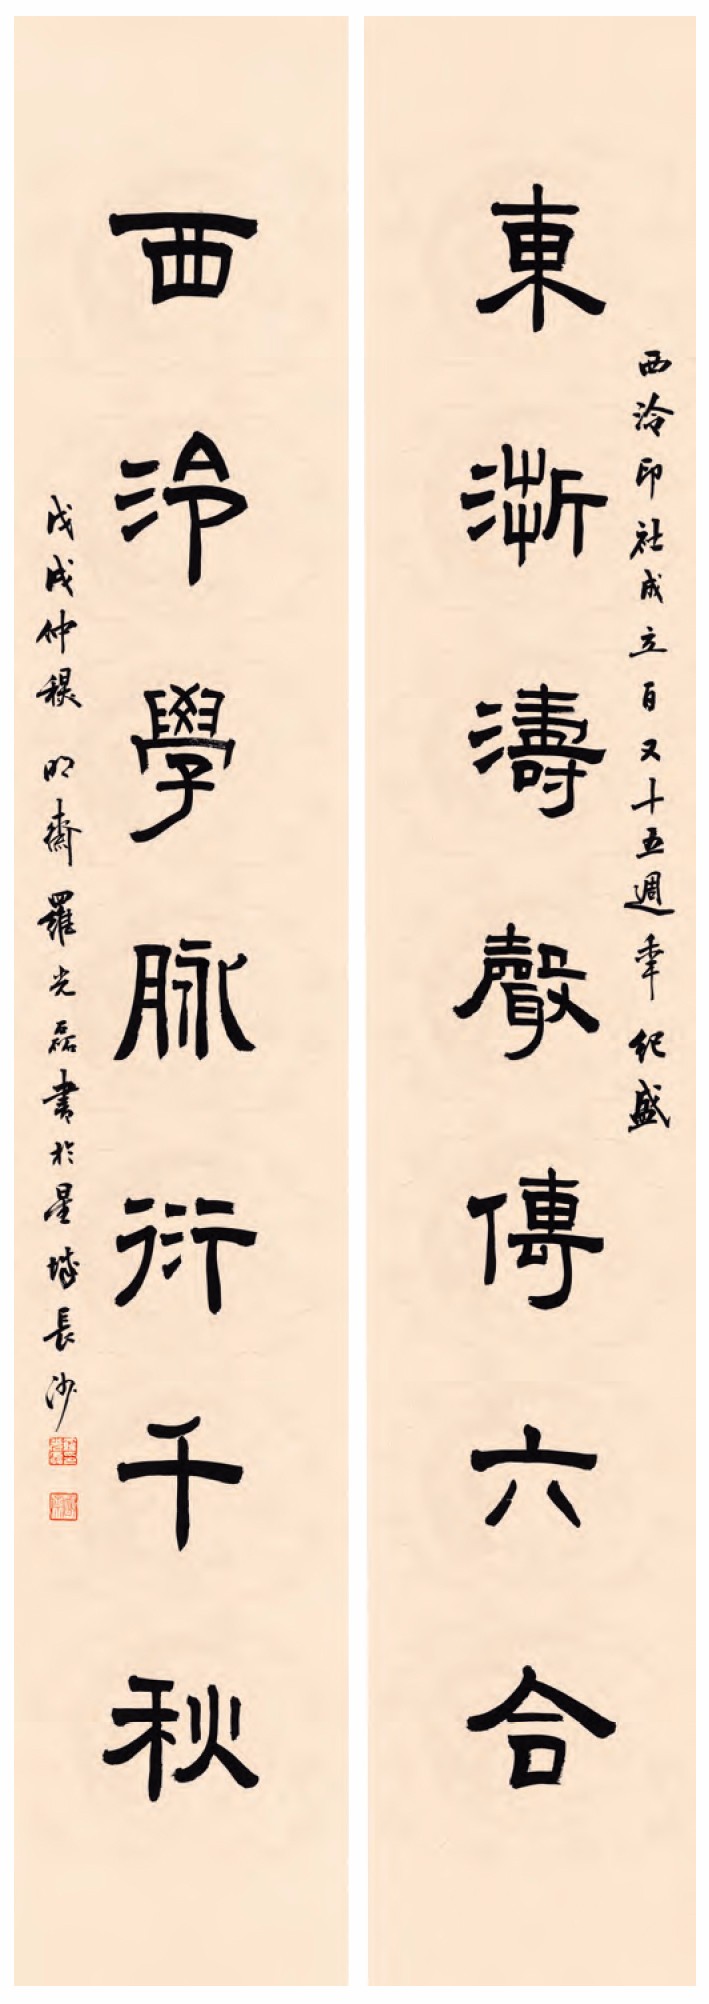 西泠印社成立百又十五週年紀盛
東浙濤聲傳六合
西泠學脉衍千秋
戊戌仲穐 明齋羅光磊書於星城長沙